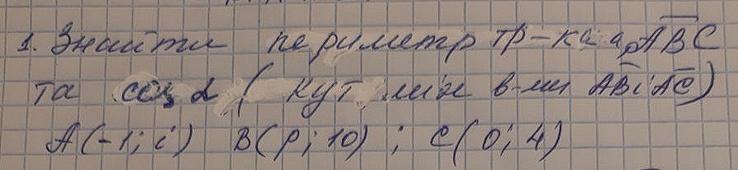 1. Знайти периметр тр-ка ABC
та cos α (кут між в-ми AB і AC)
A(-1; i) B(ρ; 10) ; C(0; 4)